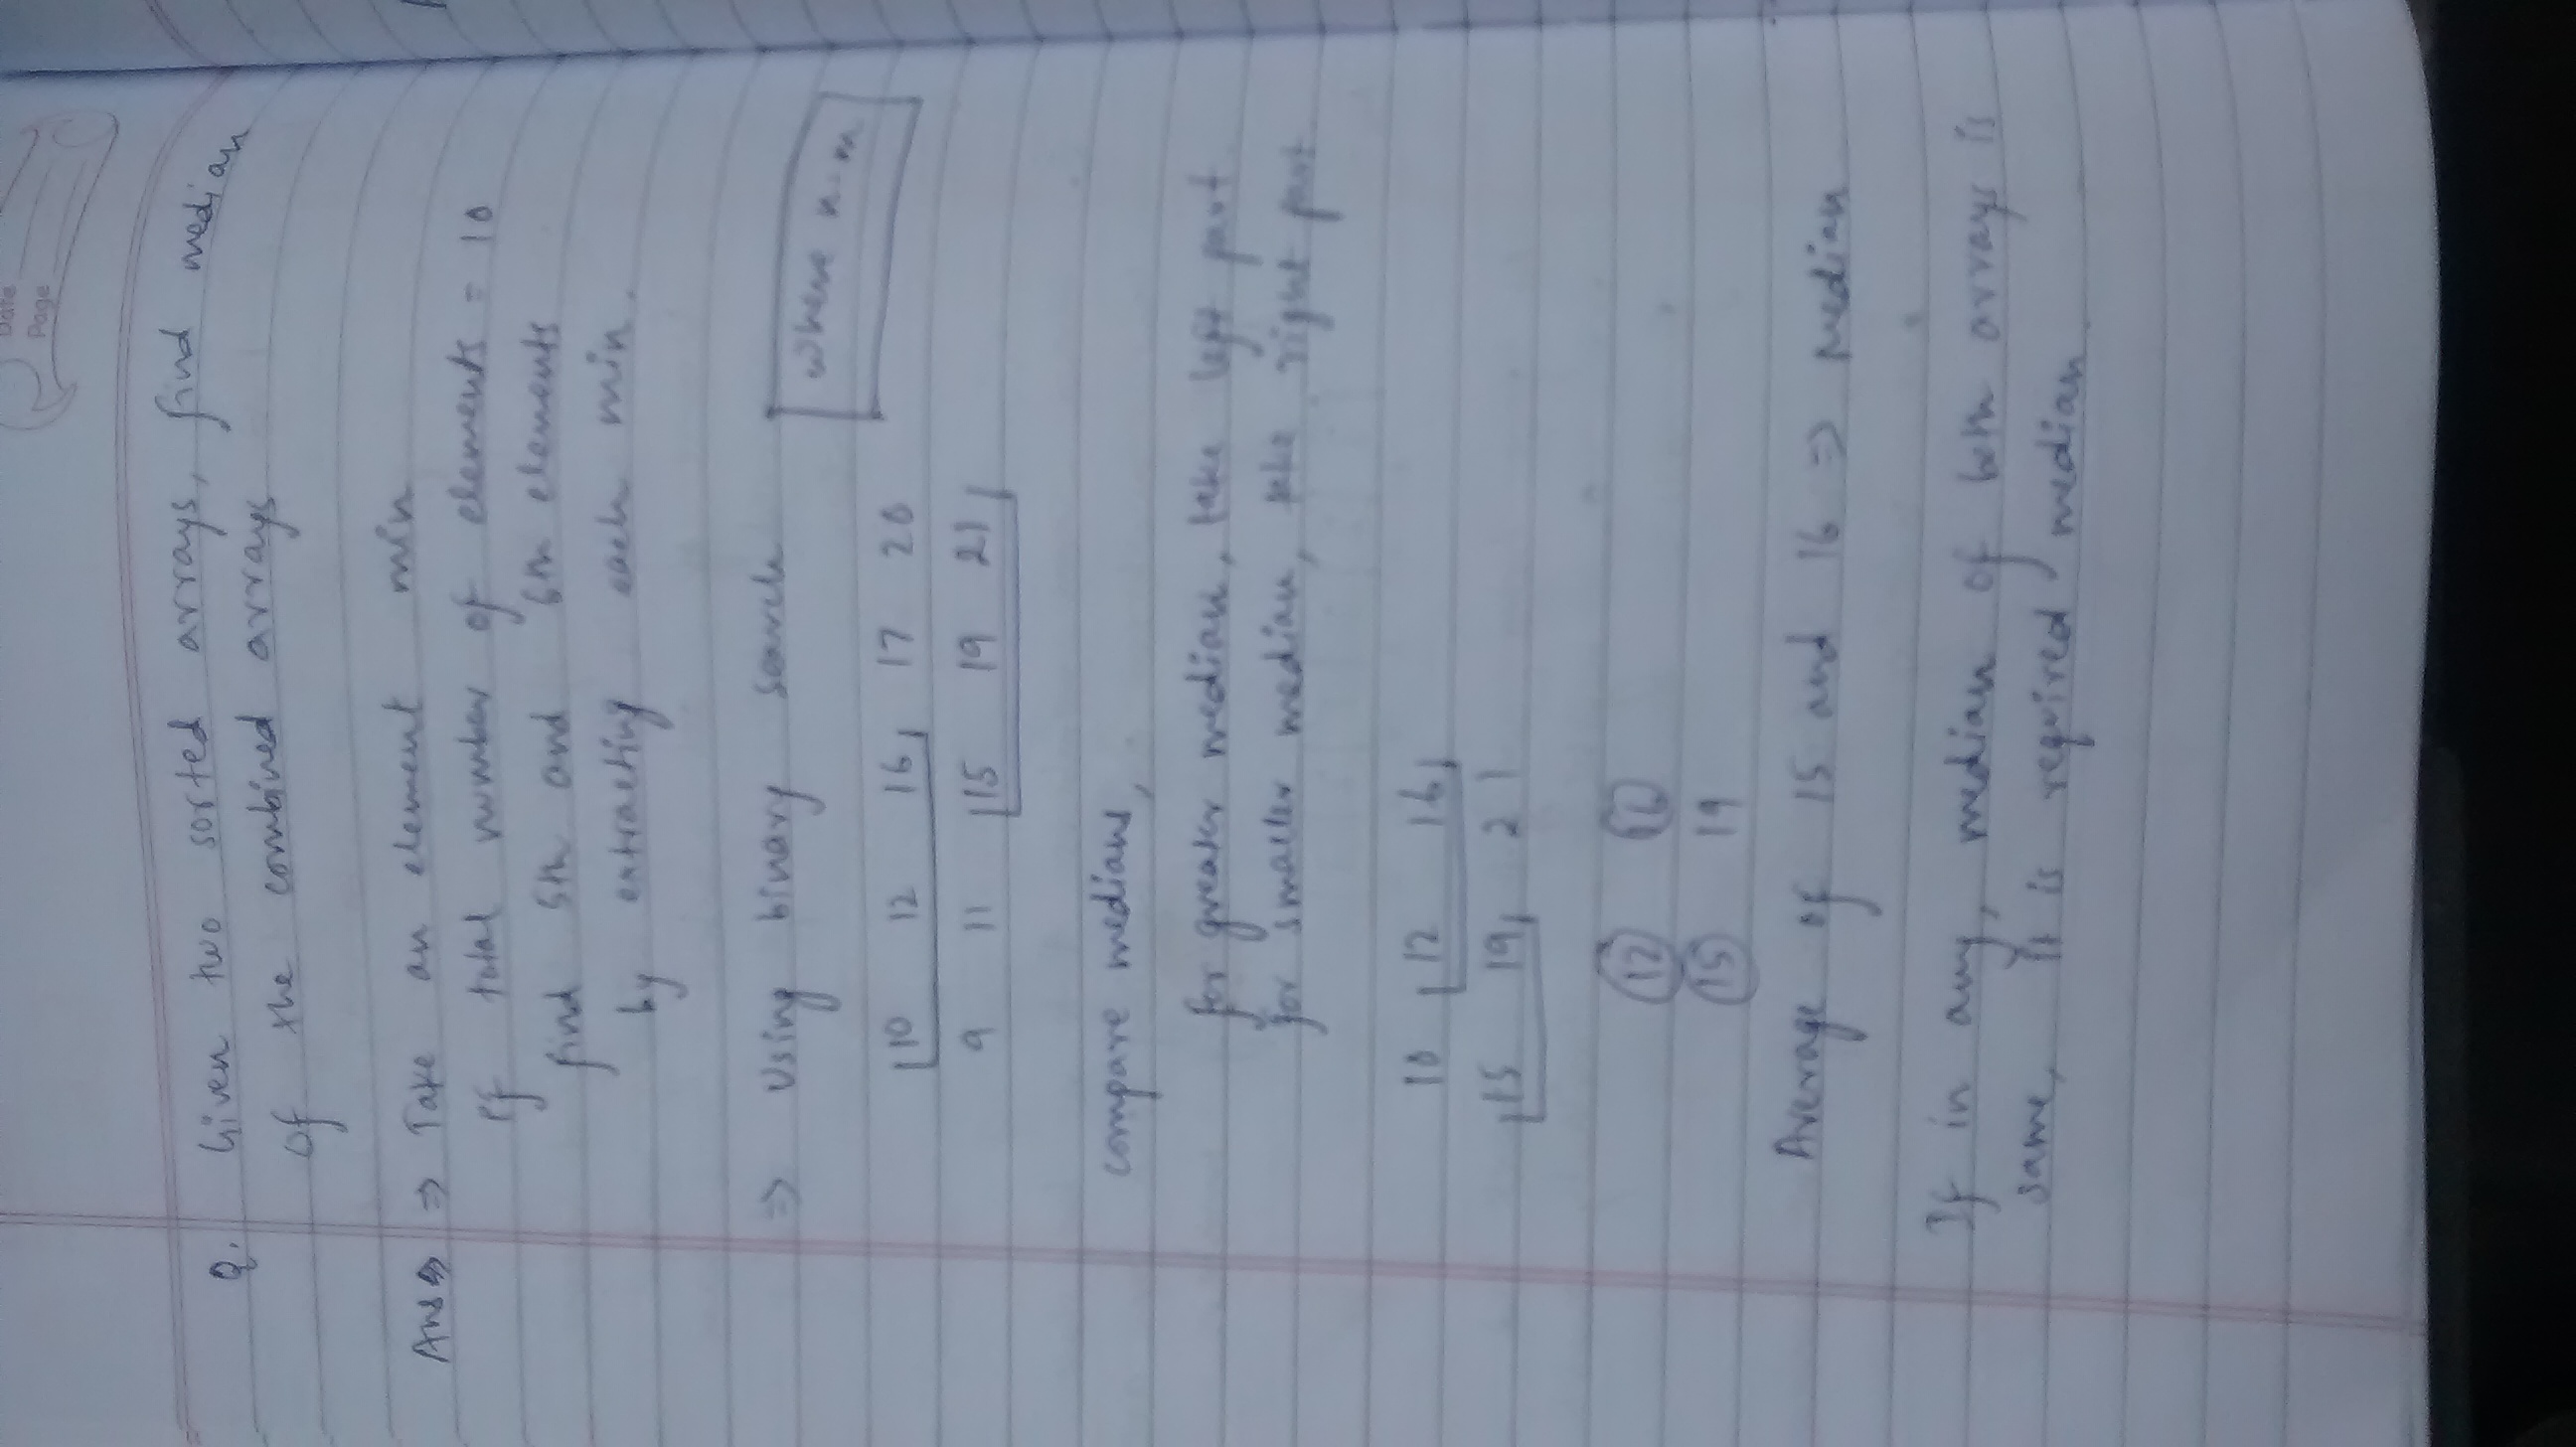 Date
Page
Q. Given two sorted arrays, find median
of the combined arrays
Ans ⇒ Take an element min
If total number of elements = 10
find 5th and 6th elements
by extracting each min.
⇒ Using binary search
where n=m
10 12 16 17 20
9 11 15 19 21
compare medians,
for greater median, take left part
for smaller median, take right part
10 12 16
15 19 21
12 16
15 19
Average of 15 and 16 ⇒ Median
If in any, median of both arrays is
same, It is required median